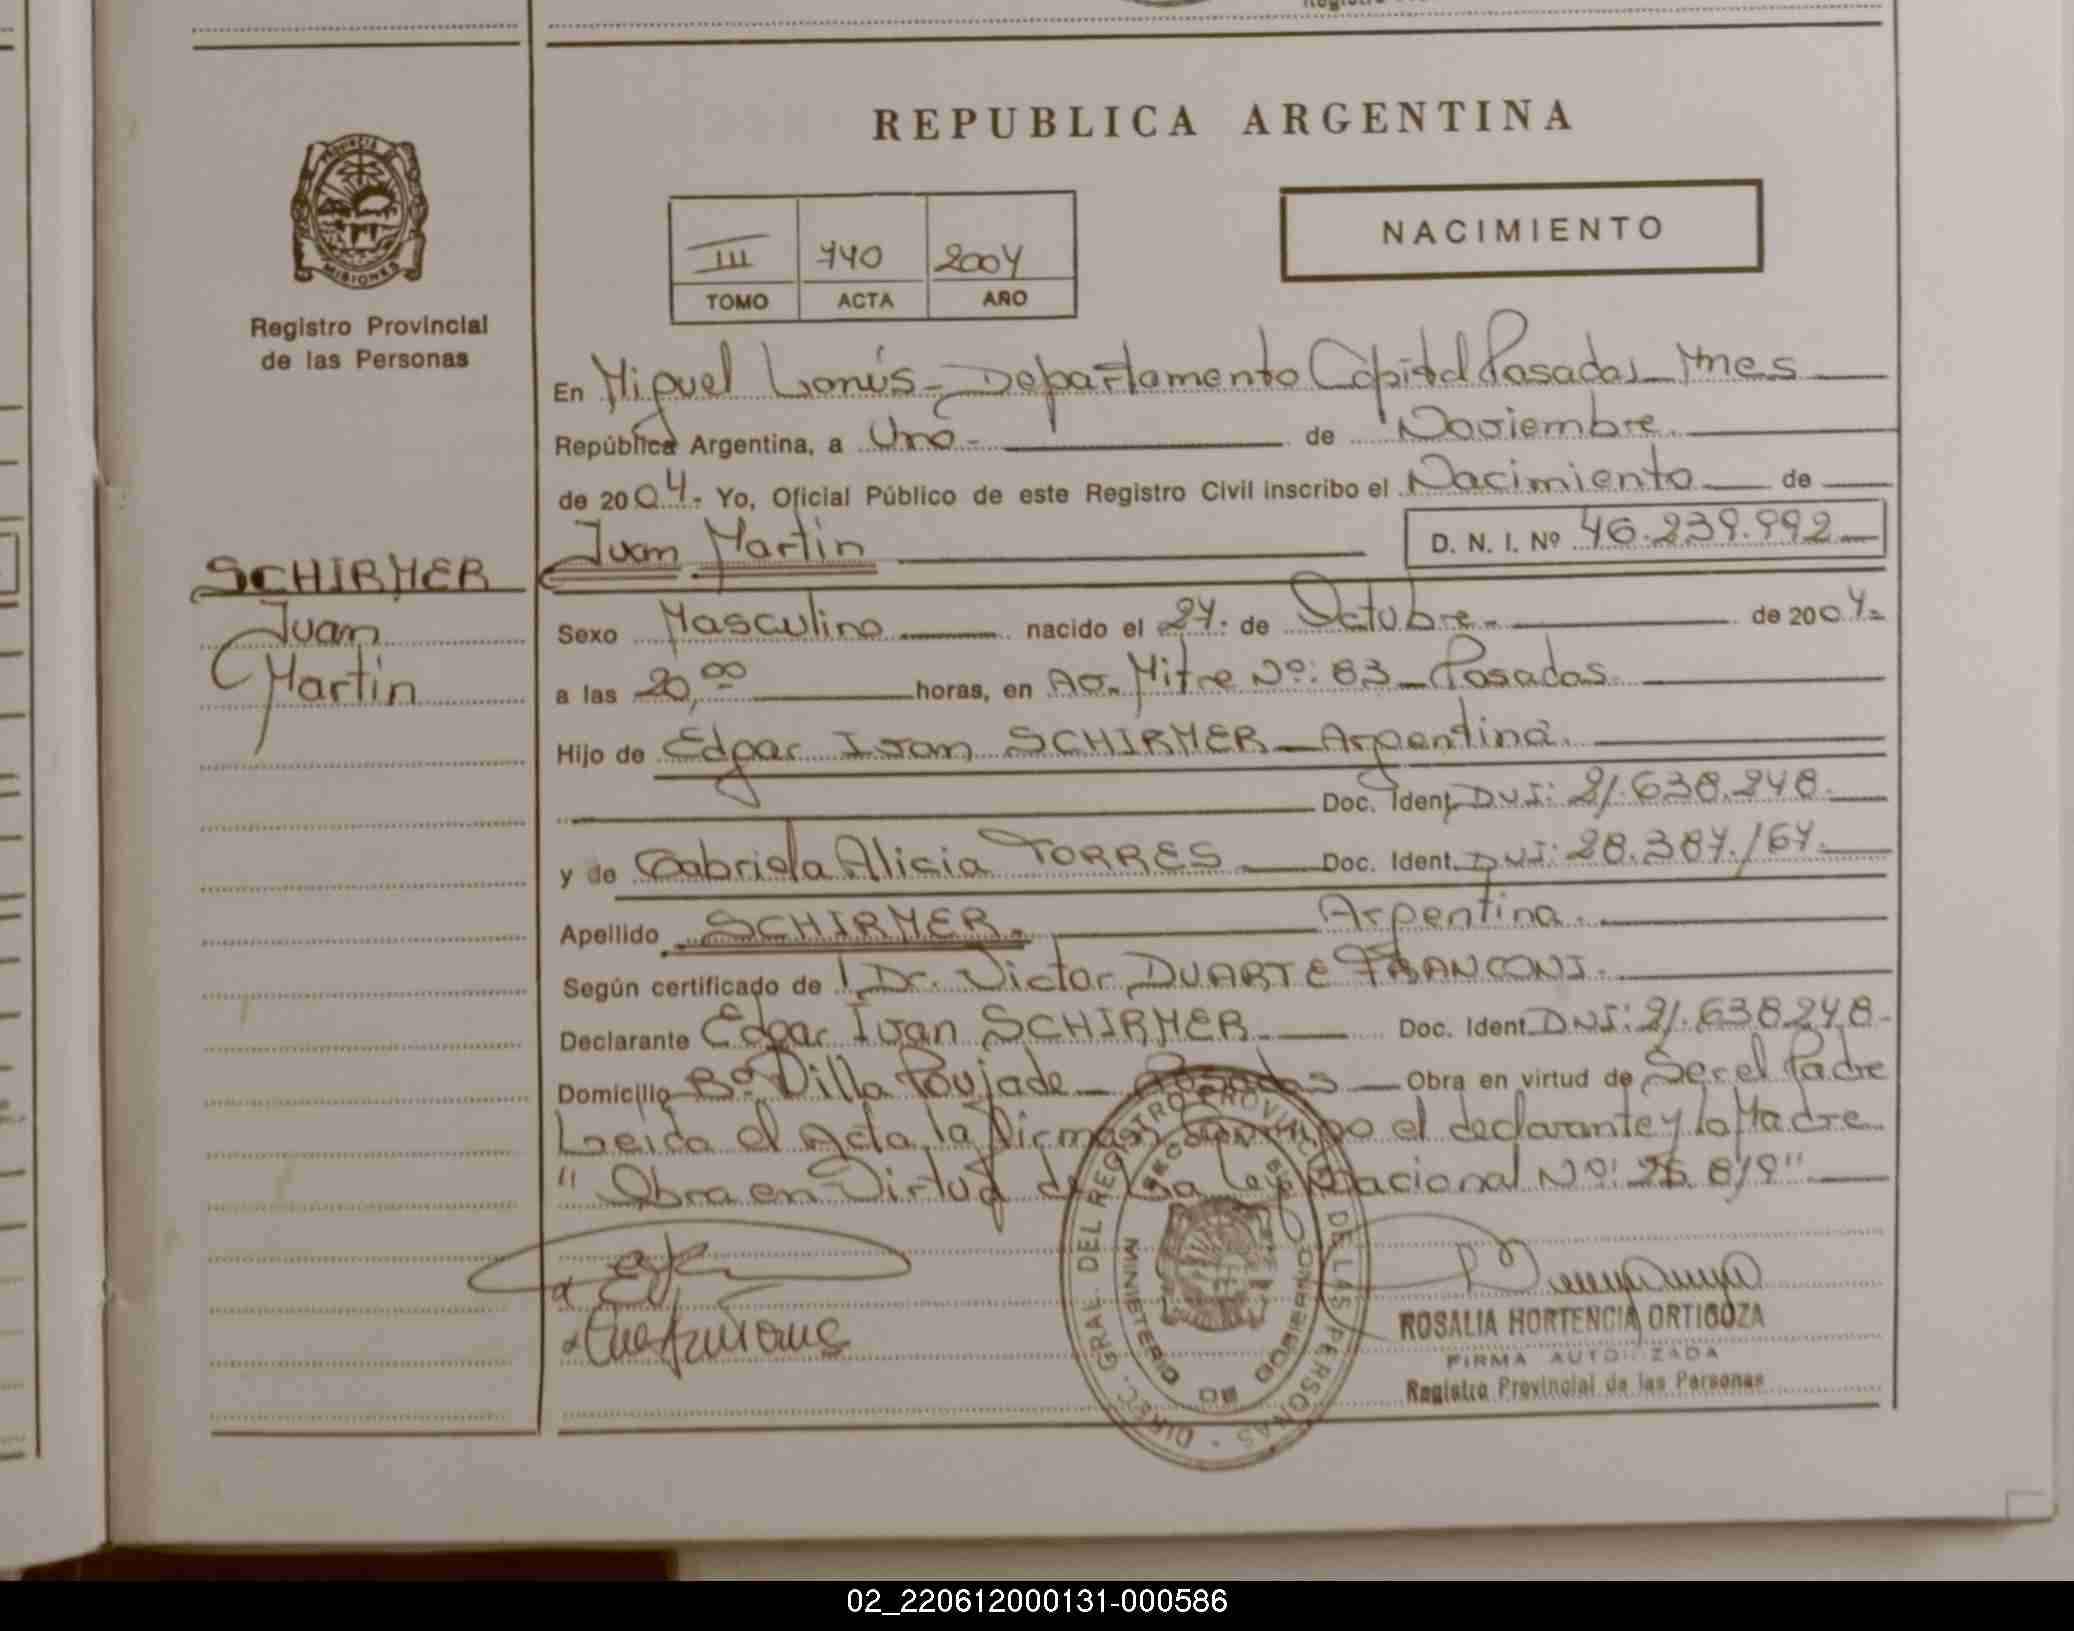 REPUBLICA ARGENTINA
PROVINCIA DE MISIONES
Registro Provincial
de las Personas
III 740 2004
TOMO ACTA AÑO
NACIMIENTO
En Miguel Lanús - Departamento Capital Posadas Mnes
República Argentina, a Uno - de Noviembre.
de 2004. Yo, Oficial Público de este Registro Civil inscribo el Nacimiento de
Juan Martin D. N. I. Nº 46.239.992
SCHIRMER
Juan
Martin
Sexo Masculino nacido el 27. de Octubre. de 2004.
a las 20,00 horas, en Av. Mitre Nº: 83 - Posadas.
Hijo de Edgar Ivan SCHIRMER - Argentina.
Doc. Ident. DNI: 21.638.248.
y de Gabriela Alicia TORRES Doc. Ident. DNI: 28.387.167.
Apellido SCHIRMER. Argentina.
Según certificado de Dr. Victor DUARTE FRANCONI.
Declarante Edgar Ivan SCHIRMER. Doc. Ident. DNI: 21.638248.
Domicilio Bº Villa Poujade - Posadas - Obra en virtud de Ser el Padre
Leida el Acta, la firman conmigo el declarante y la Madre
" Obra en Virtud de la Ley Nacional Nº: 25.819"
DIREC. GRAL. DEL REGISTRO PROVINCIAL DE LAS PERSONAS
MINISTERIO DE GOBIERNO
ROSALIA HORTENCIA ORTIGOZA
FIRMA AUTORIZADA
Registro Provincial de las Personas
02_220612000131-000586